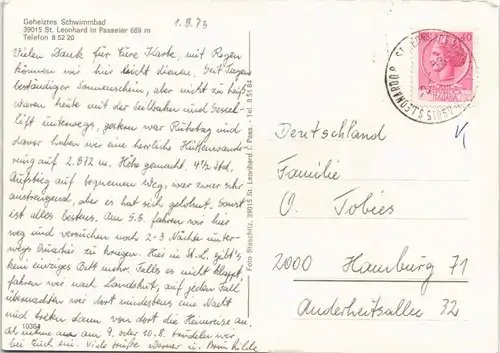 Geheiztes Schwimmbad
39015 St. Leonhard in Passeier 689 m
Telefon 8 52 20
1.8.73
Vielen Dank für Eure Karte, mit Regen
können wir hier nicht dienen. Seit Tagen
beständiger Sonnenschein, aber nicht zu heiß
waren heute mit der Seilbahn und Sessel-
lift unterwegs, gestern war Ruhetag und
davor haben wir eine herrliche Hüttenwande
rung auf 2.872 m. Höhe gemacht. 4½ Std.
Aufstieg auf bequemen Weg, war zwar sehr
anstrengend, aber es hat sich gelohnt. Sonst
ist alles bestens. Am 5.8. fahren wir hier
weg und versuchen noch 2-3 Nächte unter-
wegs Quartier zu kriegen. Hier in St. L. gibt's
kein einziges Bett mehr. Falls es nicht klappt
fahren wir nach Landshut, auf jeden Fall
übernachten wir dort mindestens eine Nacht
und treten dann von dort die Heimreise an.
Ich nehme an am 9. oder 10.8. trudeln wir
bei Euch ein. Viele Grüße Werner u. Brunhilde
10384
Foto Staschitz, 39015 St. Leonhard i. Pass. - Tel. 8 51 84
40
Deutschland
Familie
O. Tobies
2000 Hamburg 71
Anderheitsallee 32